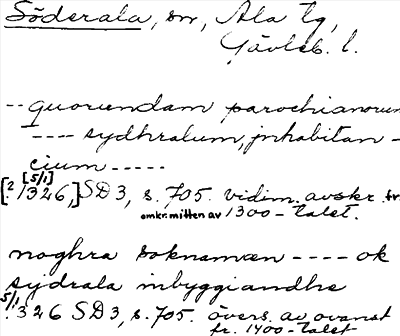 Söderala, sn, Ala tg,
Gävleb. l.
-- quorundam parochianorum
---- sydhralum, jnhabitan-
cium -----
[5/1]
[? 1326,] SD 3, s. 705. vidim. avskr. fr.
omkr. mitten av 1300-talet.
noghra soknamæn ---- ok
sydrala inbyggiandhe
5/1 1326 SD 3, s. 705. övers. av ovanst.
fr. 1400-talet